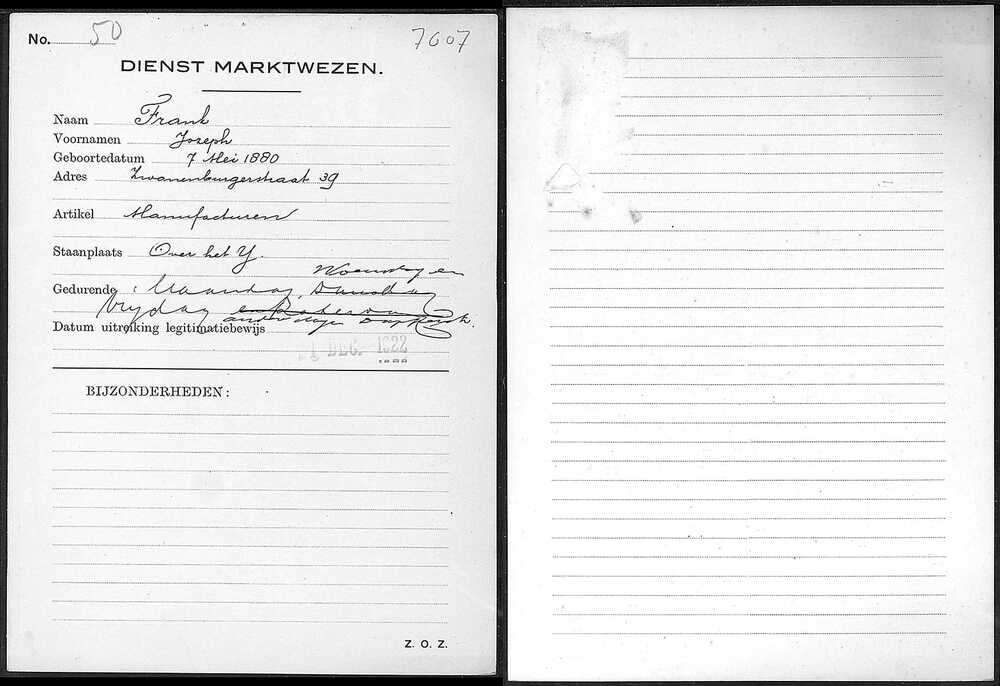 No. 50 7607
DIENST MARKTWEZEN.
Naam Frank
Voornamen Joseph
Geboortedatum 7 Mei 1880
Adres Zwanenburgerstraat 39
Artikel Manufacturen
Staanplaats Over het Y.
Woensdag en
Gedurende : Maandag, Dinsdag
Vrydag en Zaterdag
andere dagen
Datum uitreiking legitimatiebewijs
1 DEC. 1922
BIJZONDERHEDEN:
Z. O. Z.